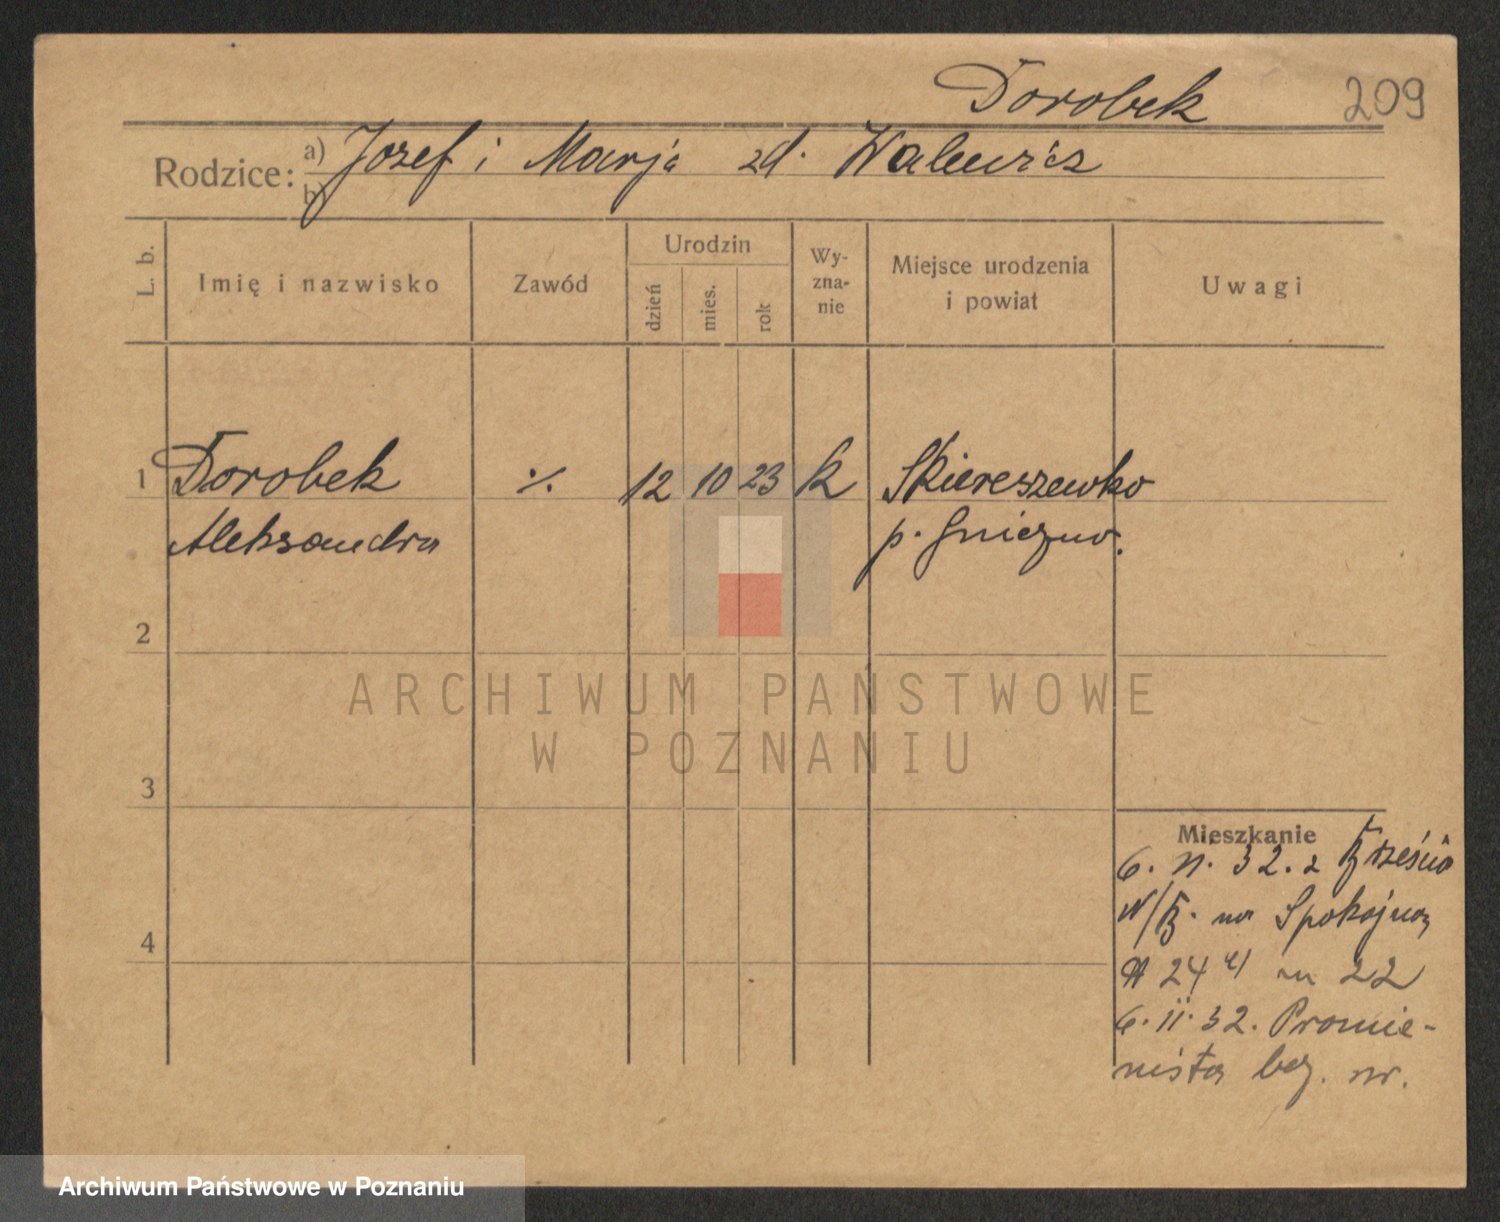 Dorobek 209
Rodzice: a) Jozef i Marja zd. Walewicz
b)
L. b. Imię i nazwisko Zawód Urodzin dzień mies. rok Wyznanie Miejsce urodzenia i powiat Uwagi
1 Dorobek ·/. 12 10 23 k Skiereszewko
Aleksandra p. Gniezno.
2
ARCHIWUM PAŃSTWOWE
W POZNANIU
3
Mieszkanie
6. II. 32. z Brześcia
n/B. na Spokojną
24 m 22
4
6. II. 32. Promie-
nista bez. nr.
Archiwum Państwowe w Poznaniu